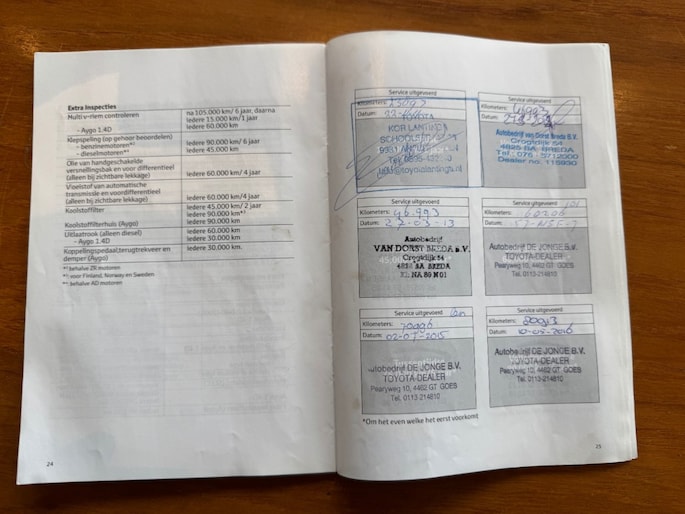 Extra Inspecties
Multi v-riem controleren
na 105.000 km/ 6 jaar, daarna
iedere 15.000 km/1 jaar
- Aygo 1.4D
iedere 60.000 km
Klepspeling (op gehoor beoordelen)
- benzinemotoren*¹
iedere 90.000 km/ 6 jaar
- dieselmotoren*³
iedere 45.000 km
Olie van handgeschakelde
versnellingsbak en voor differentieel
(alleen bij zichtbare lekkage)
iedere 60.000 km/ 4 jaar
Vloeistof van automatische
transmissie en voordifferentieel
(alleen bij zichtbare lekkage)
iedere 60.000 km/4 jaar
Koolstoffilter
iedere 45.000 km/ 2 jaar
iedere 90.000 km*²
Koolstoffilterhuis (Aygo)
iedere 90.000 km
Uitlaatrook (alleen diesel)
iedere 60.000 km
- Aygo 1.4D
iedere 30.000 km
Koppelingspedaalterugtrekveer en
demper (Aygo)
iedere 30.000 km.
*¹ behalve ZR motoren
*² voor Finland, Norway en Sweden
*³ behalve AD motoren
24
Service uitgevoerd
Kilometers:
Datum:
TOYOTA
KOR LANTINGA
Service uitgevoerd
Kilometers:
Datum:
Autobedrijf van Dorst Breda B.V.
Crogtdijk 54
4825 SA BREDA
Tel.: 076 - 5712000
Dealer no. 115930
Service uitgevoerd
Kilometers: 46.993
Datum: 27-03-13
Autobedrijf
VAN DORST BREDA B.V.
Crogtdijk 54
4825 SA BREDA
Service uitgevoerd
Kilometers: 60206
Datum:
Autobedrijf DE JONGE B.V.
TOYOTA-DEALER
Pearyweg 10, 4462 GT GOES
Tel. 0113-214810
Service uitgevoerd
Kilometers: 70996
Datum: 02-07-2015
Autobedrijf DE JONGE B.V.
TOYOTA-DEALER
Pearyweg 10, 4462 GT GOES
Tel. 0113-214810
Service uitgevoerd
Kilometers:
Datum:
Autobedrijf DE JONGE B.V.
TOYOTA-DEALER
Pearyweg 10, 4462 GT GOES
Tel. 0113-214810
*Om het even welke het eerst voorkomt
25